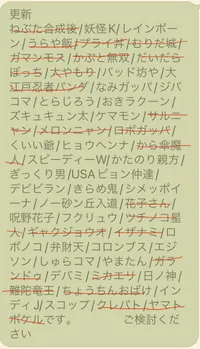 更新
ねぶた合成後/妖怪K/レインボー
ン/うらや飯/フライ丼/むりだ城/
ガマンモス/かぶと無双/だいだら
ぼっち/大やもり/バッド坊や/大
江戸忍者パンダ/なみガッパ/ジバ
コマ/とらじろう/おきラクーン/
ズキュキュン太/ケマモン/サルニャ
ン/メロンニャン/ロボガッパ/
くいい爺/ヒョウヘンナ/から傘魔
人/スピーディーW/かたのり親方/
ぎっくり男/USAピョン仲達/
デビビラン/きらめ鬼/シメッポイ
ーナ/ノー砂ン丘入道/花子さん/
呪野花子/フクリュウ/ツチノコ星
人/ギャクジョウオ/イザナミ/ロ
ボノコ/弁財天/コロンブス/エジ
ソン/しゅらコマ/やまたん/ガラ
ンドゥ/デバミ/ミカエサ/日ノ神/
難陀竜王/ちょうちんおばけ/イン
ディJ/スコップ/クレパト/ヤマト
ポケルです。 ご検討くだ
さい